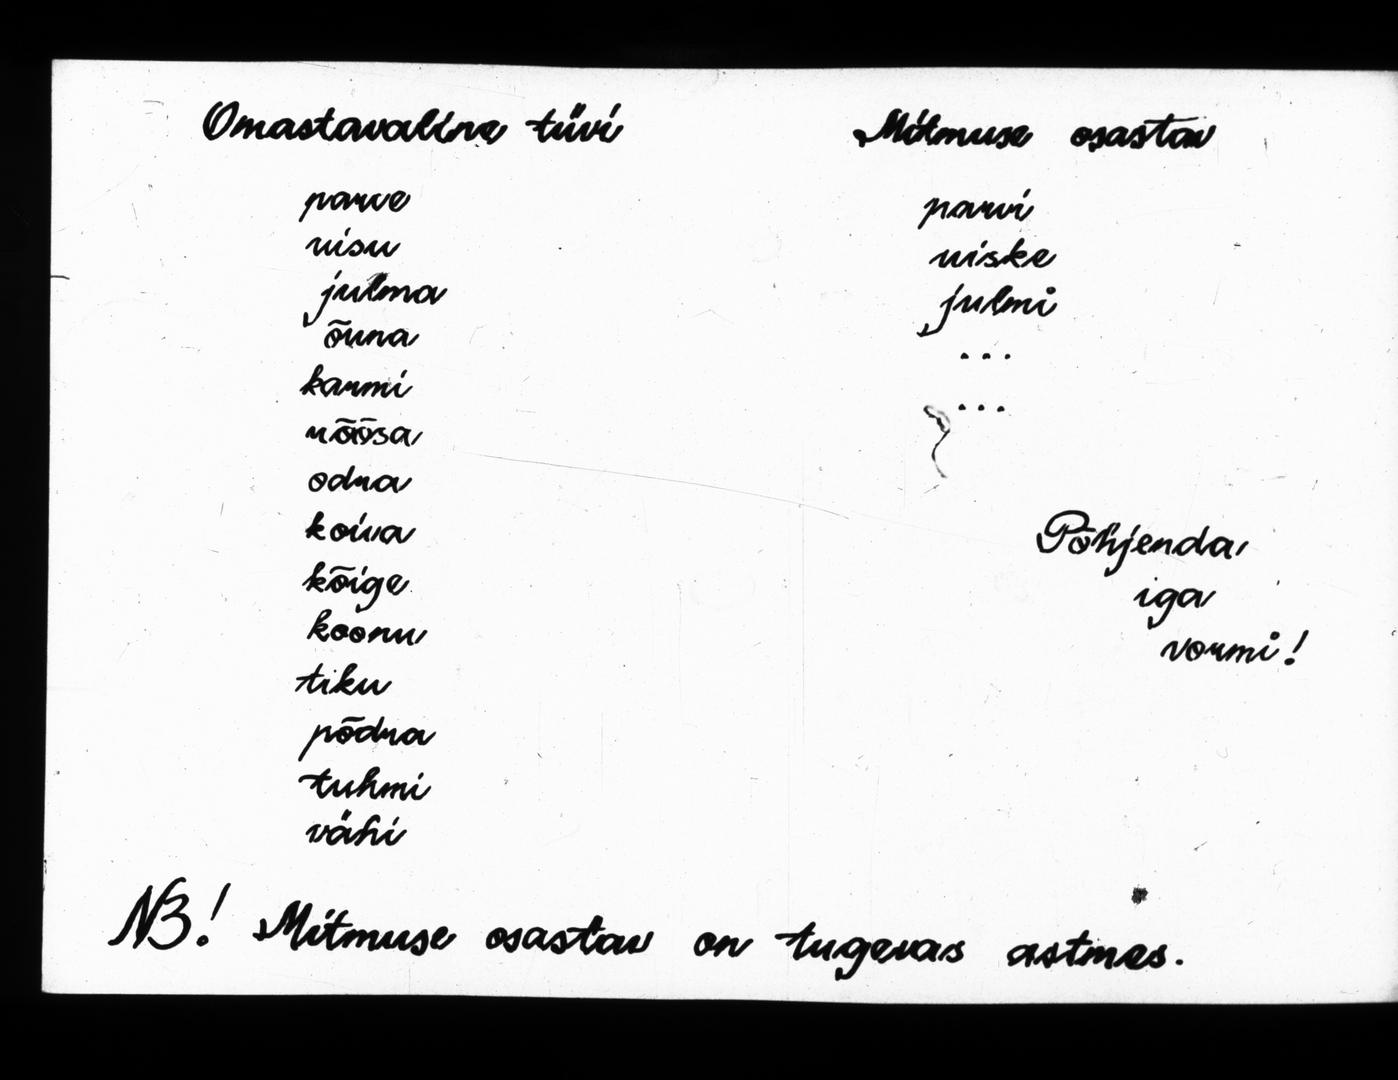 Omastavaline tüvi
parve
uisu
julma
õuna
karmi
rõõsa
odra
koiva
kõige
koonu
tiku
põdra
tuhmi
vähi
Mitmuse osastav
parvi
uiske
julmi
...
...
Põhjenda
iga
vormi!
NB! Mitmuse osastav on tugevas astmes.